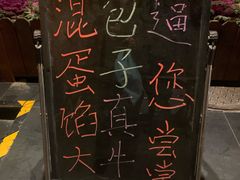 混蛋馅大
包子真牛
逼您尝尝